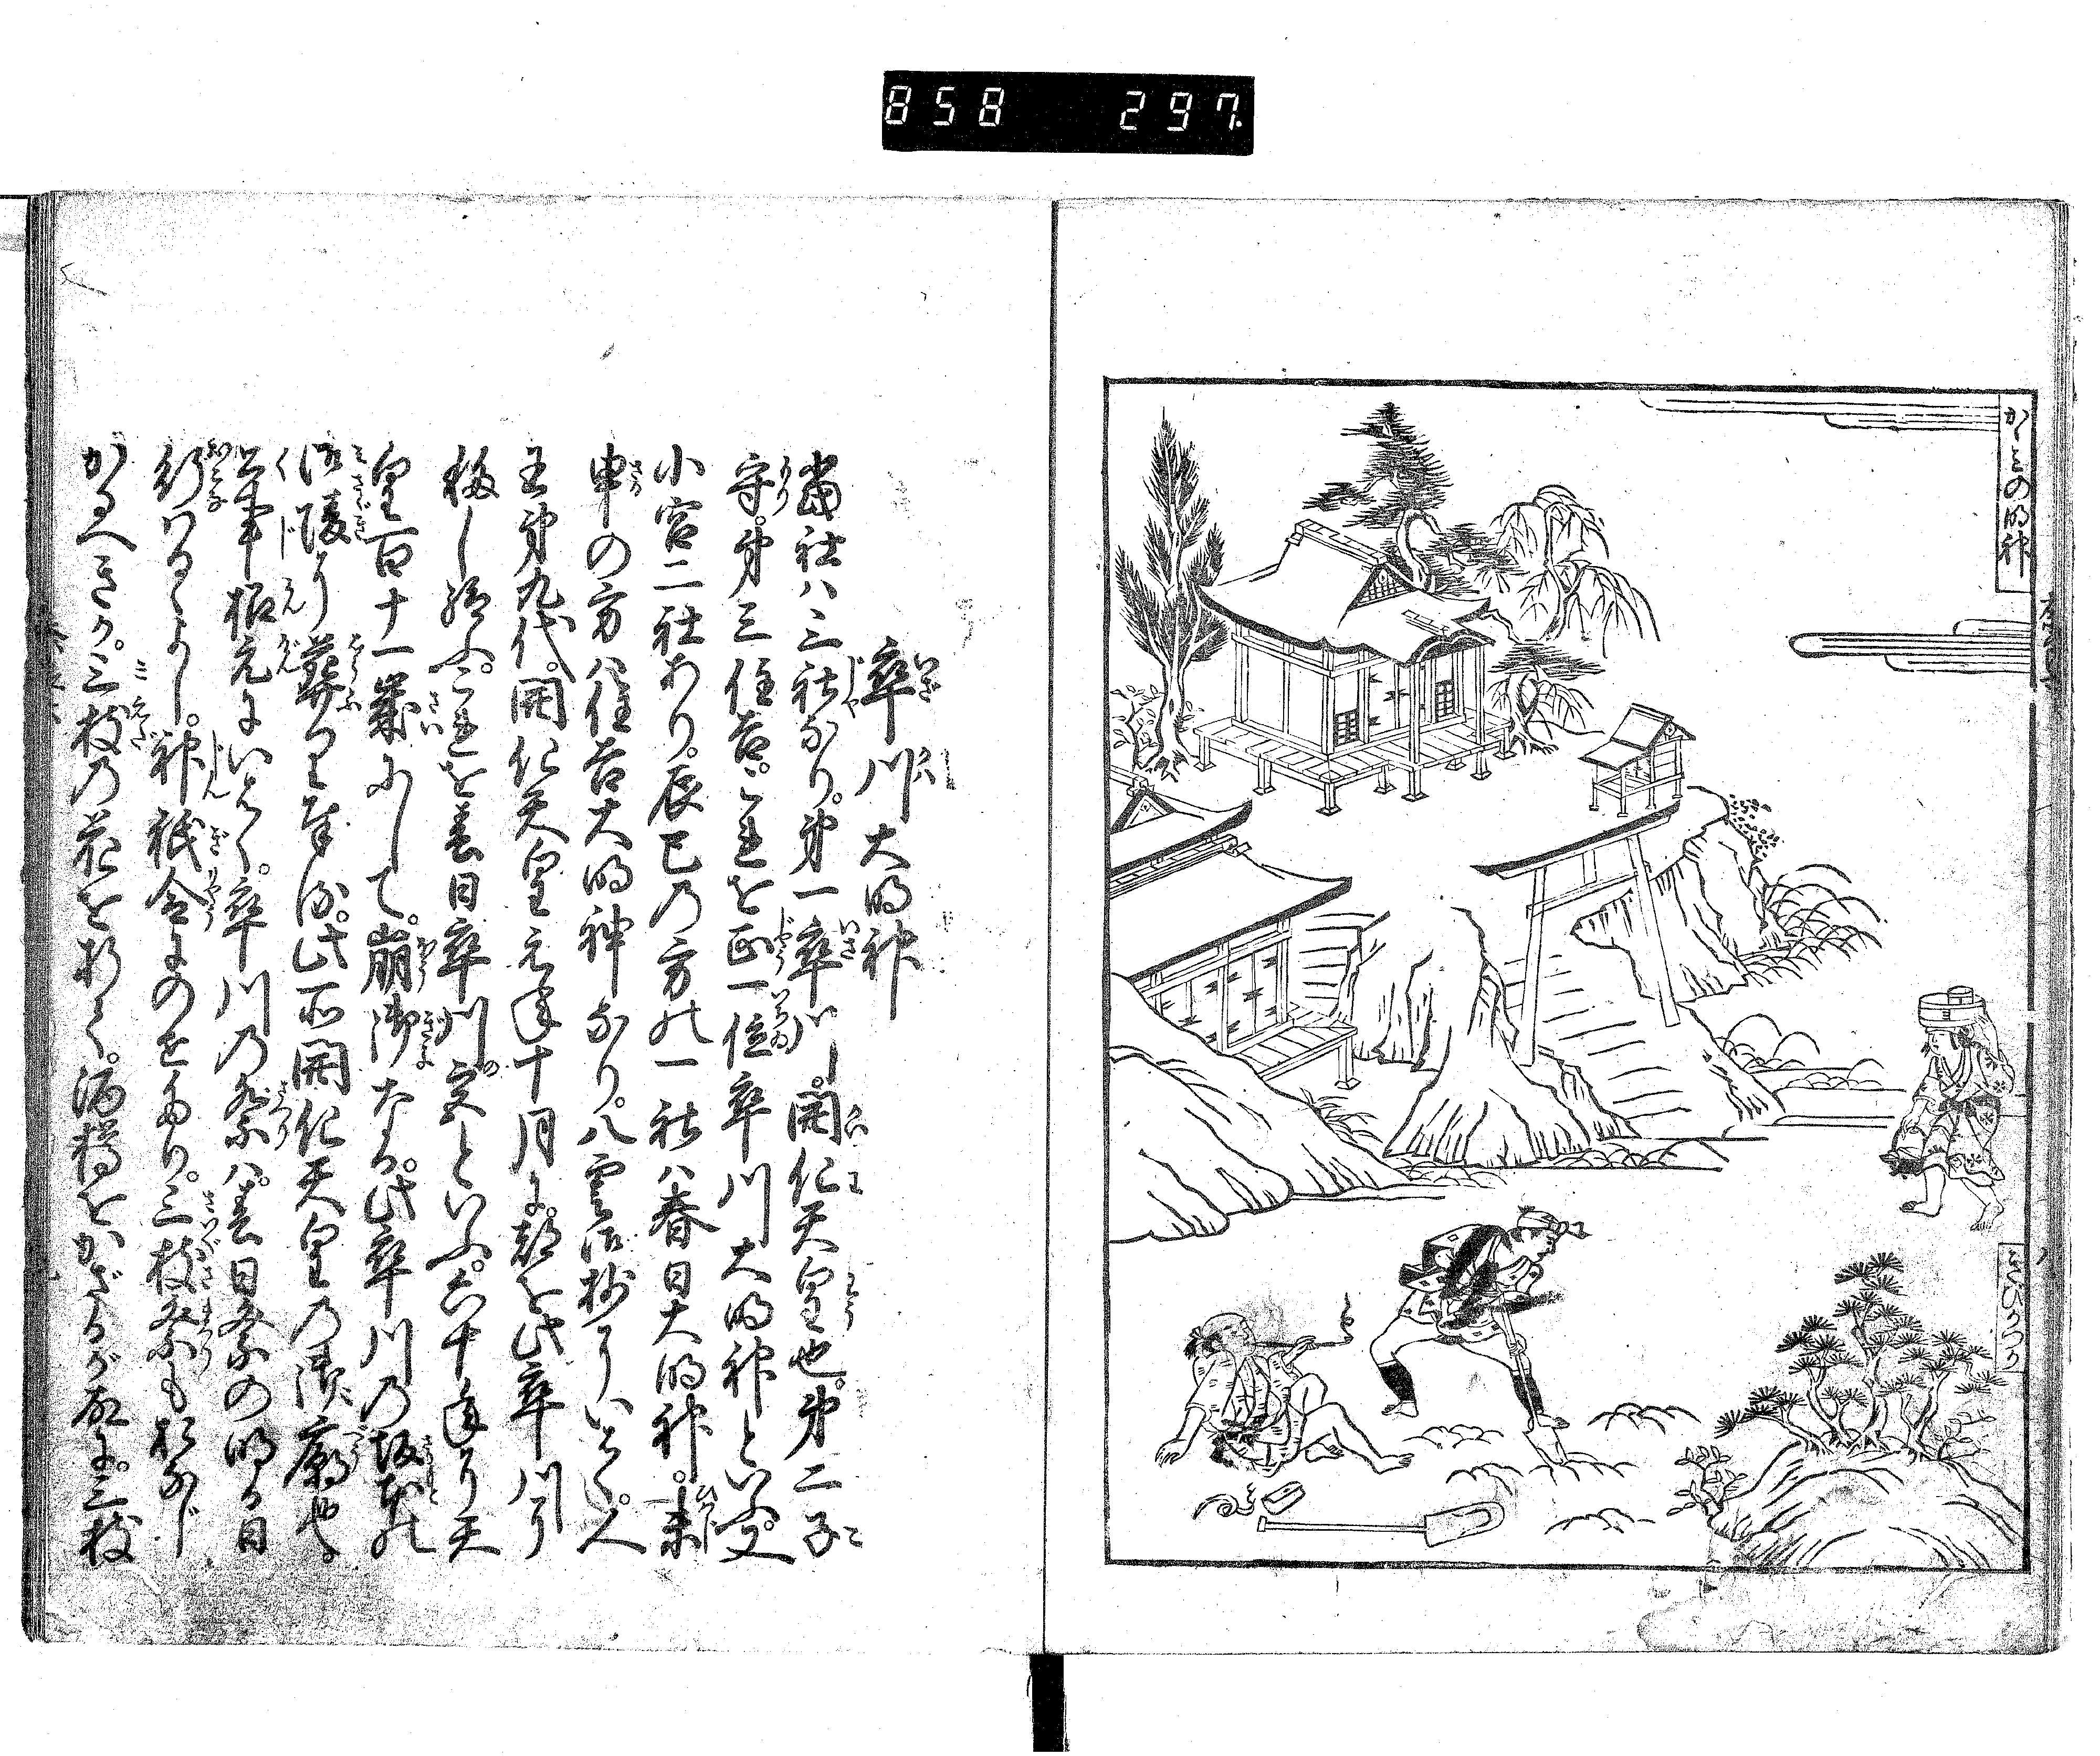 858 297
かゝみの明神
率川大明神
当社ハ三社なり。第一率川。開化天皇也。第二子
守。第三住吉。これを正一位率川大明神といふ。又
小宮二社あり。辰巳の方の一社ハ春日大明神。未
申の方ハ住吉大明神なり。八雲御抄にいはく。人
王第九代。開化天皇元年十月に都を此率川に
移し給ふ。これを春日率川宮といふ。六十年に天
皇百十一歳にして。崩御なる。此率川の坂本の
御陵に葬り奉る。此所開化天皇の御廟也。
公事根元にいはく。率川の祭ハ。春日祭の明る日
行はるゝよし。神祇令にのせたり。三枝祭も松なじ
かるへきか。三枝の花を折て。酒樽をかざるが故に。三枝